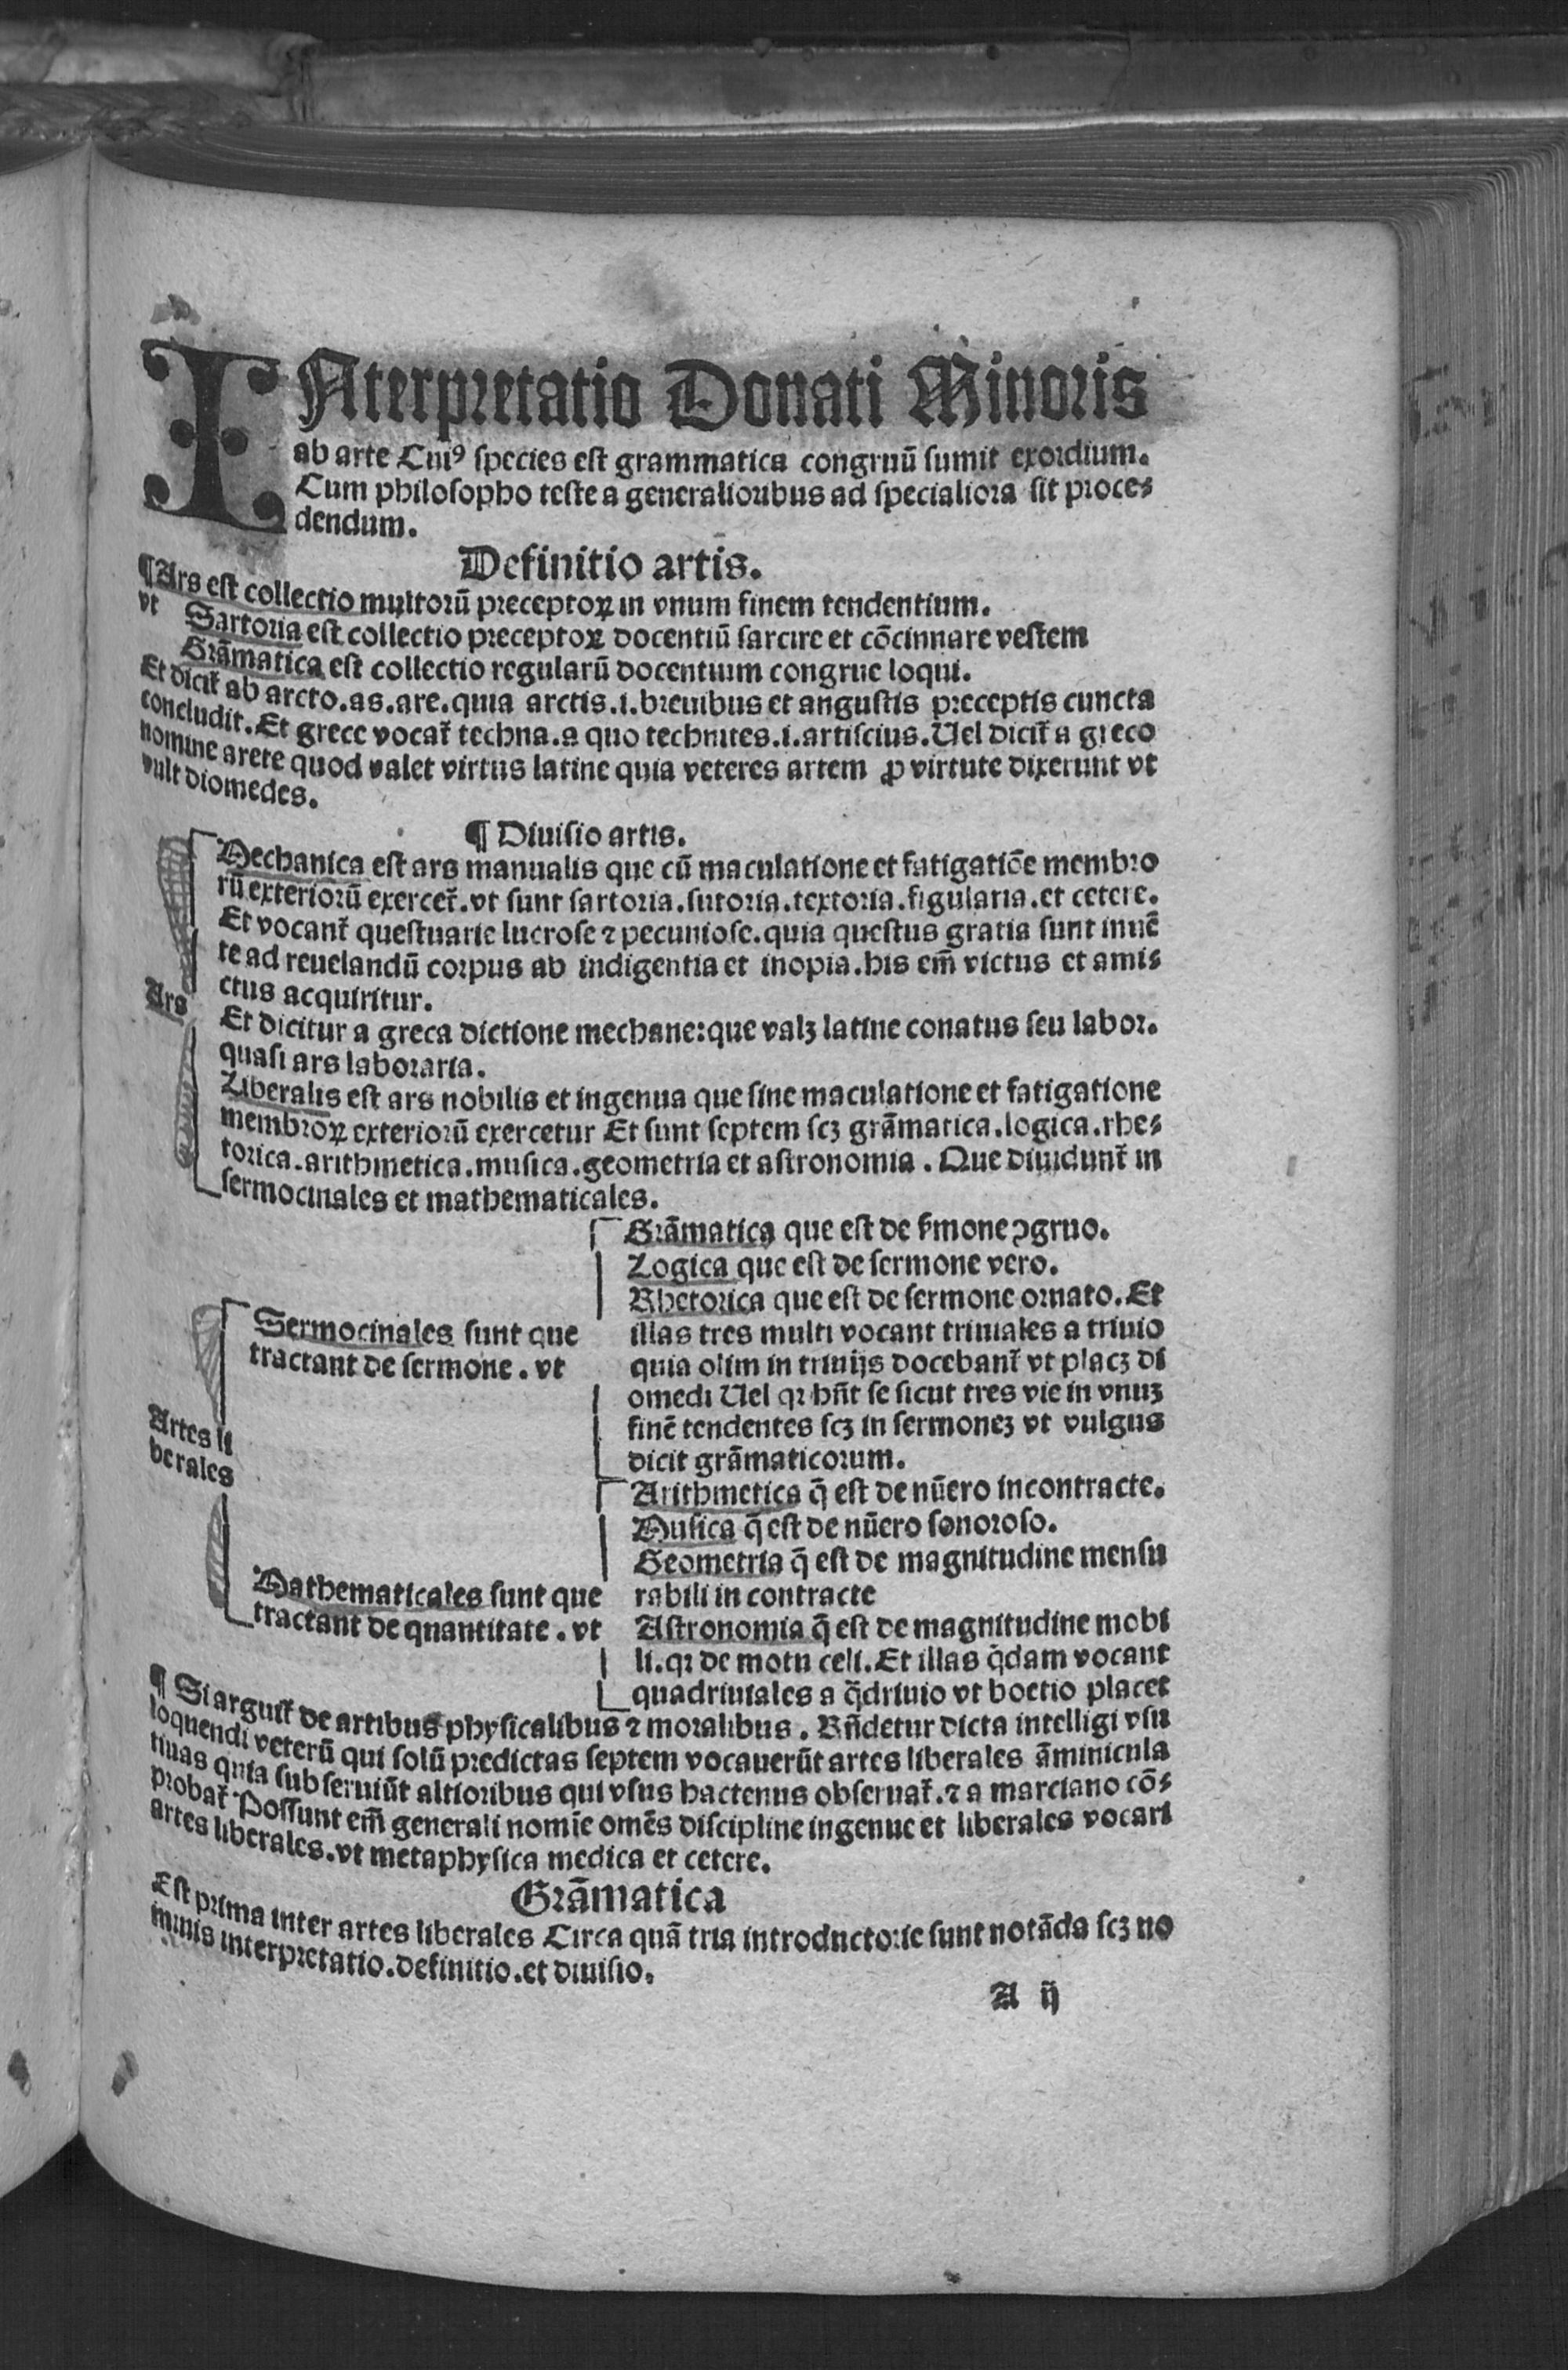 INterpretatio Donati Minoris
ab arte Cuiꝰ species est grammatica congruū sumit exordium.
Cum philosopho teste a generalioribus ad specialiora sit proces⸗
dendum.
Definitio artis.
¶ Ars est collectio multorū preceptoꝝ in vnum finem tendentium.
vt Sartoria est collectio preceptoꝝ docentiū sarcire et cōcinnare vestem
Grāmatica est collectio regularū docentium congrue loqui.
Et dicit᷑ ab arcto.as.are.quia arctis.i.breuibus et angustis preceptis cuncta
concludit. Et grece vocat᷑ techna.a quo technites.i.artificius. Uel dicit᷑ a greco
nomine arete quod valet virtus latine quia veteres artem ꝓ virtute dixerunt vt
vult diomedes.
¶ Diuisio artis.
Mechanica est ars manualis que cū maculatione et fatigatiōe membro
rū exteriorū exercet᷑.vt sunt sartoria.sutoria.textoria.figularia.et cetere.
Et vocant᷑ questuarie lucrose ⁊ pecuniose.quia questus gratia sunt inuē
te ad reuelandū corpus ab indigentia et inopia.his em̄ victus et ami⸗
ctus acquiritur.
Ars
Et dicitur a greca dictione mechane:que valꝫ latine conatus seu labor.
quasi ars laboraria.
Liberalis est ars nobilis et ingenua que sine maculatione et fatigatione
membroꝝ exteriorū exercetur Et sunt septem scꝫ grāmatica.logica.rhe⸗
torica.arithmetica.musica.geometria et astronomia. Que diuidunt᷑ in
sermocinales et mathematicales.
Artes li
berales
Sermocinales sunt que
tractant de sermone. vt
Grāmatica que est de s̄mone ꝯgruo.
Logica que est de sermone vero.
Rhetorica que est de sermone ornato. Et
illas tres multi vocant triuiales a triuio
quia olim in triuijs docebant᷑ vt placꝫ di
omedi Uel qꝛ hn̄t se sicut tres vie in vnuꝫ
finē tendentes scꝫ in sermoneꝫ vt vulgus
dicit grāmaticorum.
Mathematicales sunt que
tractant de quantitate. vt
Arithmetica q̄ est de nūero incontracte.
Musica q̄ est de nūero sonoroso.
Geometria q̄ est de magnitudine mensu
rabili in contracte
Astronomia q̄ est de magnitudine mobi
li.qꝛ de motu celi. Et illas q̇dam vocant
quadriuiales a q̄driuio vt boetio placet
¶ Si arguit᷑ de artibus physicalibus ⁊ moralibus. Rn̄detur dicta intelligi vsu
loquendi veterū qui solū predictas septem vocauerūt artes liberales āminicula
tiuas quia sub seruiūt altioribus qui vsus hactenus obseruat᷑.⁊ a marciano cō⸗
probat᷑ Possunt em̄ generali nomīe omēs discipline ingenue et liberales vocari
artes liberales.vt metaphysica medica et cetere.
Grāmatica
Est prima inter artes liberales Circa quā tria introductorie sunt notāda scꝫ no
minis interpretatio.definitio.et diuisio.
A ij